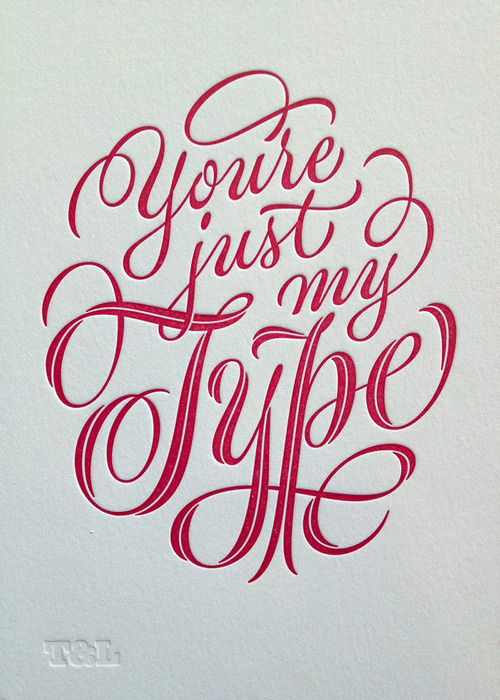 You're
just
my
Type
T&L